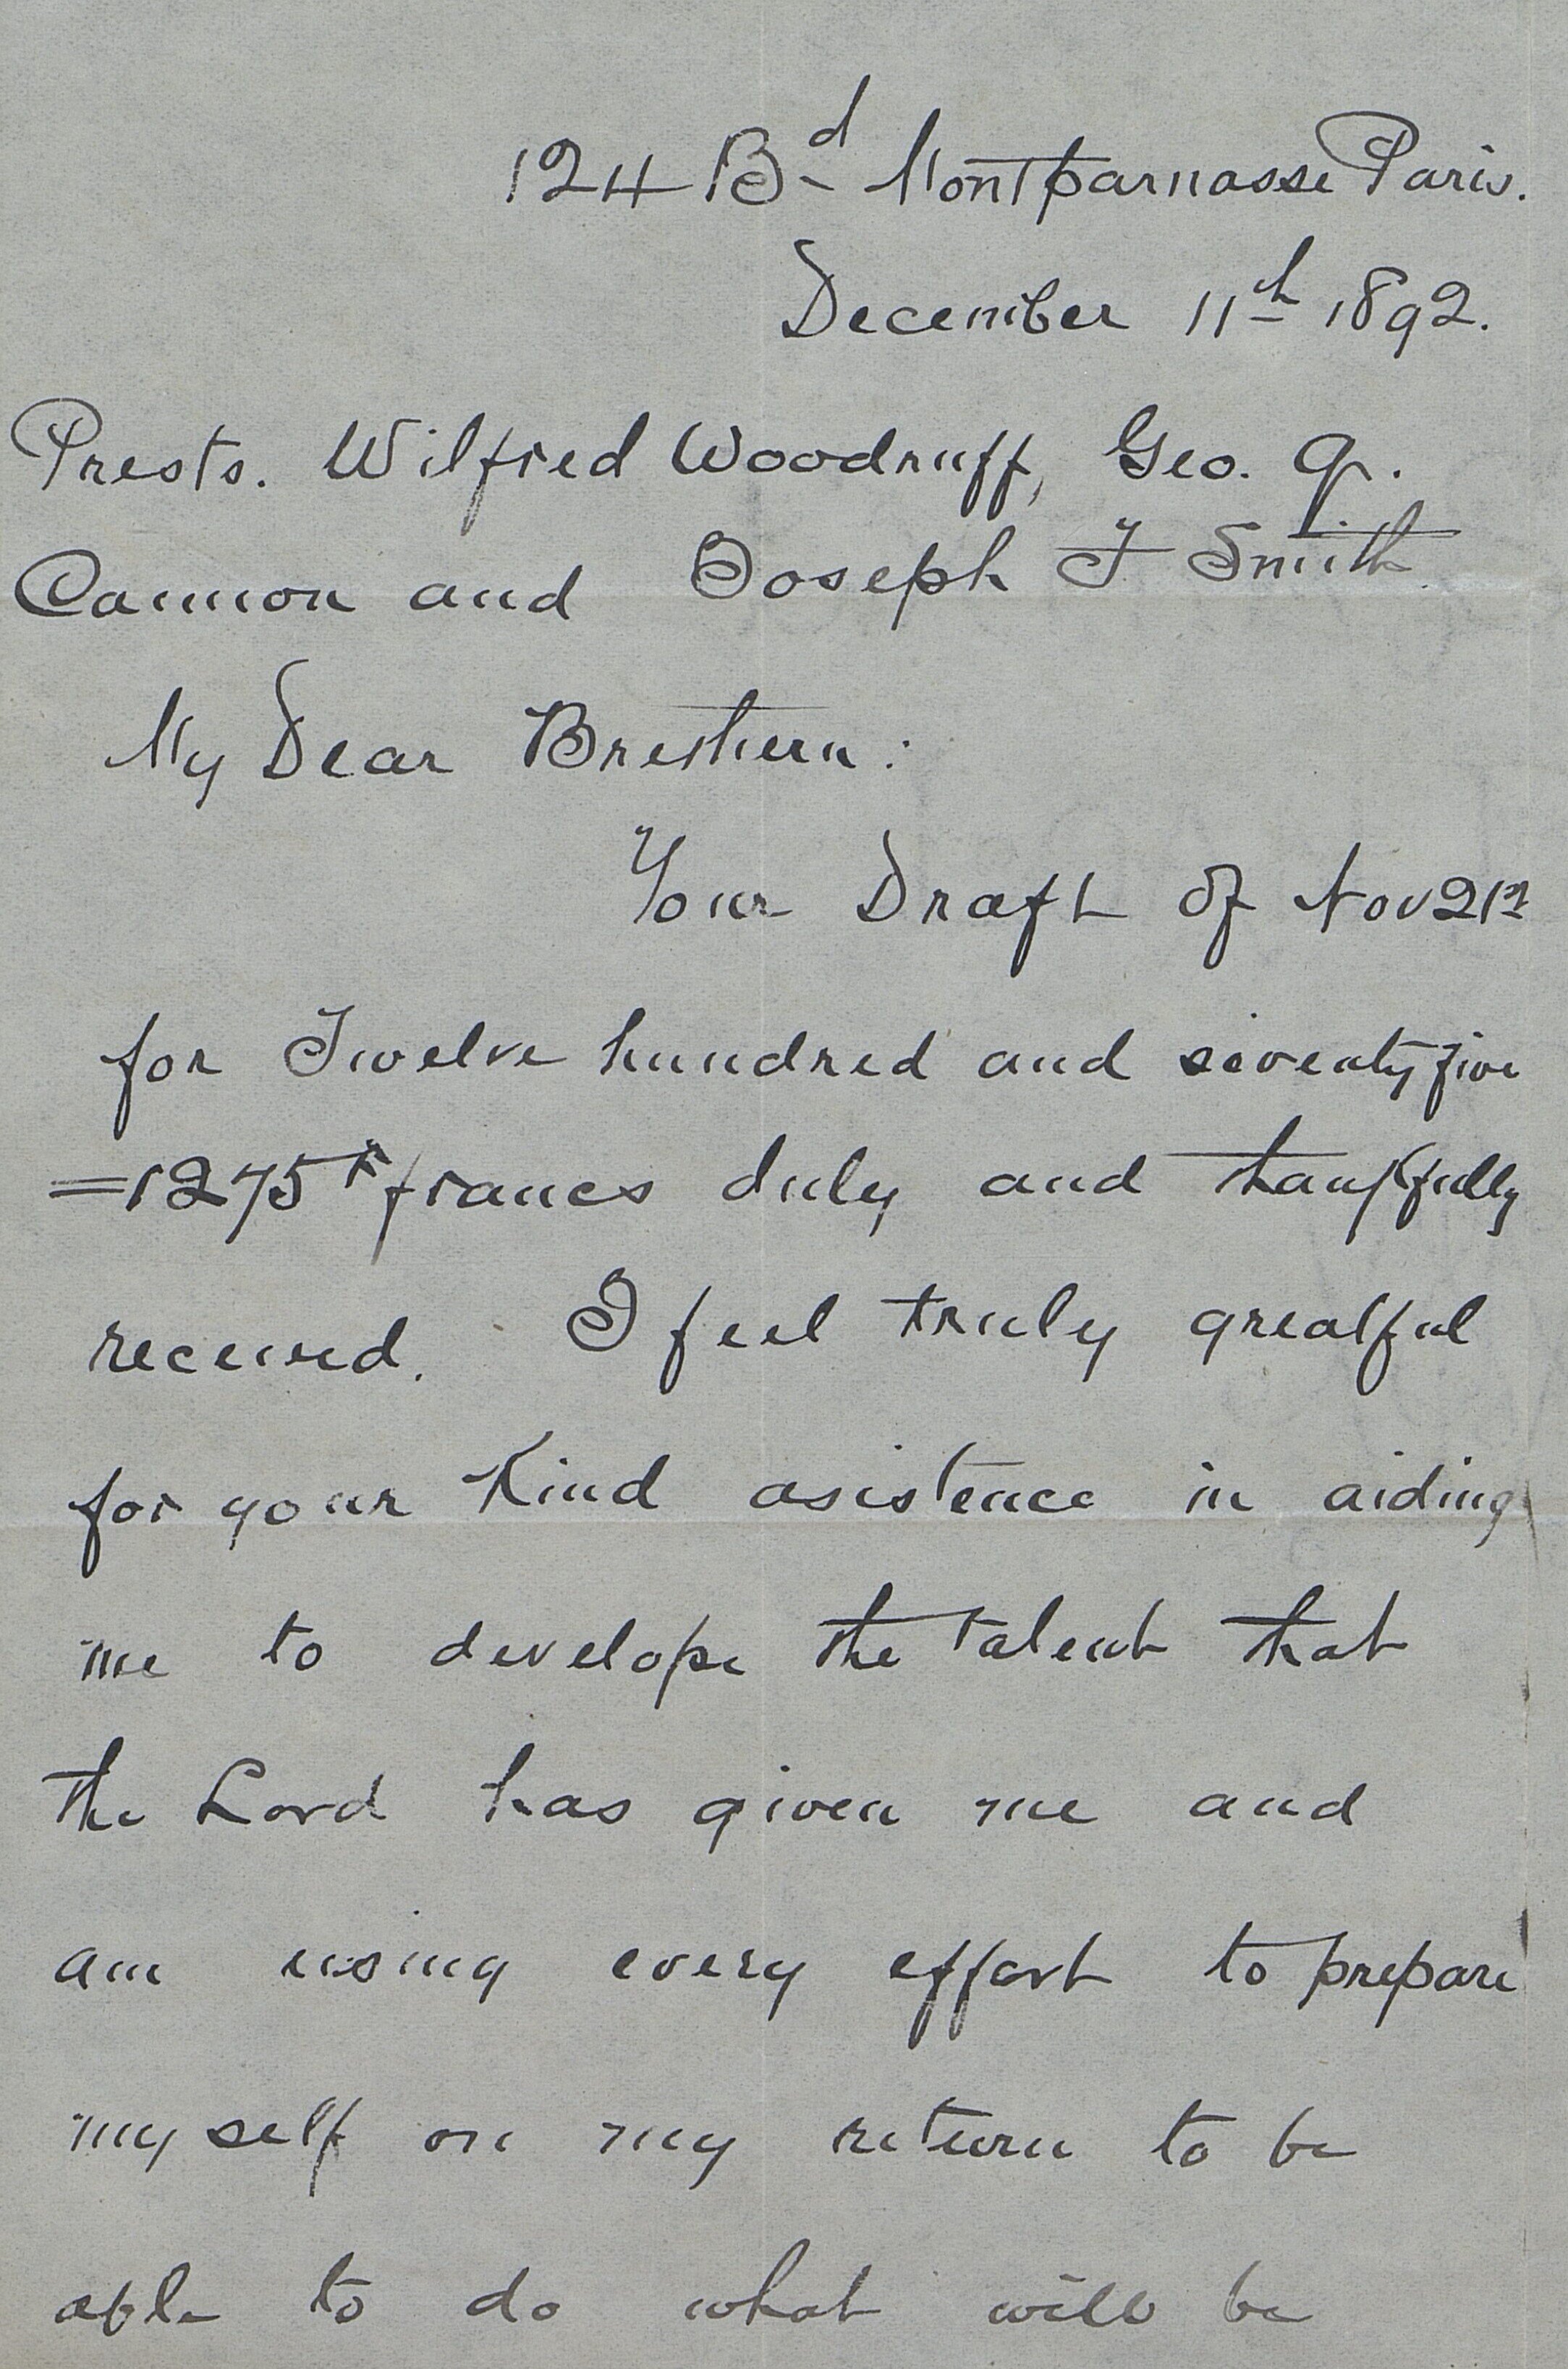 124 Bd Montparnasse Paris.
December 11th 1892.
Prests. Wilfred Woodruff, Geo. Q.
Cannon and Joseph F Smith
My Dear Brethern:
Your Draft of Nov 21st
for Twelve hundred and seventy five
=1275 Fr francs duly and thankfully
received. I feel truly greatful
for your Kind asistence in aiding
me to develope the talent that
the Lord has given me and
am using every effort to prepare
my self on my return to be
able to do what will be